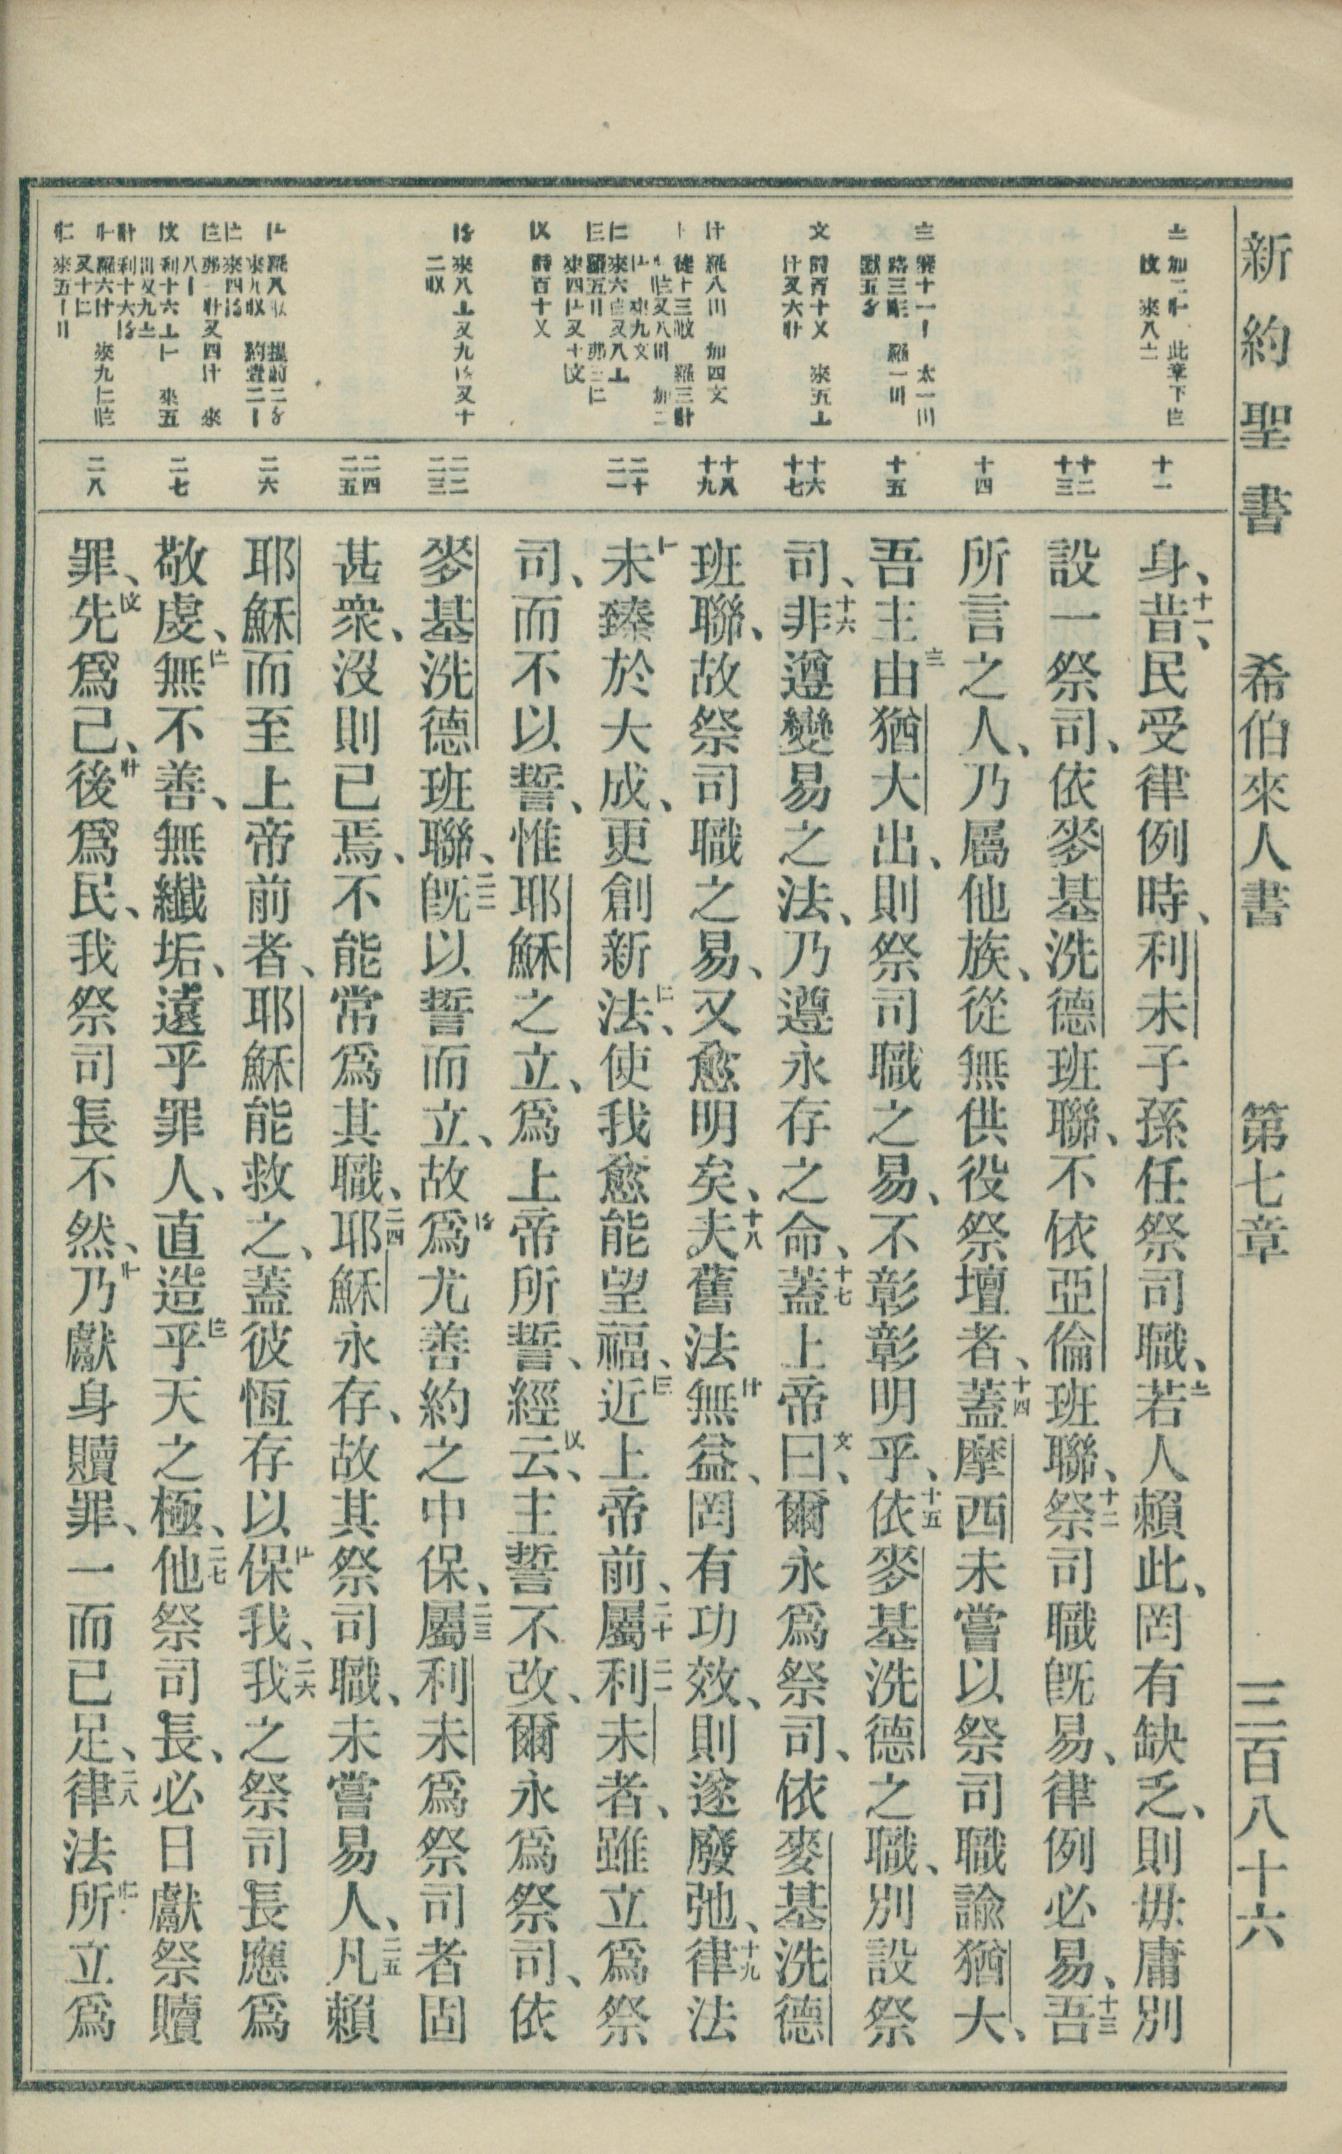 新約聖書 希伯來人書 第七章 三百八十六
十一
十二 十三
十四
十五
十六 十七
十八 十九
二十 二一
二二 二三
二四 二五
二六
二七
二八
身、十一昔、民受律例時、利未子孫任祭司職、若人賴此、罔有缺乏、則毋庸別
設一祭司、依麥基洗德班聯、不依亞倫班聯、十二祭司職旣易、律例必易、十三吾
所言之人、乃屬他族、從無供役祭壇者、十四蓋摩西未嘗以祭司職諭猶大、
吾主由猶大出、則祭司職之易、不彰彰明乎、十五依麥基洗德之職、別設祭
司、十六非遵變易之法、乃遵永存之命、十七蓋上帝曰、爾永爲祭司、依麥基洗德
班聯、故祭司職之易、又愈明矣、十八夫舊法無益、罔有功效、則遂廢弛、十九律法
未臻於大成、更創新法、使我愈能望福、近上帝前、二十屬二一利未者、雖立爲祭
司、而不以誓、惟耶穌之立、爲上帝所誓、經云、主誓不改、爾永爲祭司、依
麥基洗德班聯、二二旣以誓而立、故爲尤善約之中保、二三屬利未爲祭司者固
甚衆、沒則已焉、不能常爲其職、二四耶穌永存、故其祭司職、未嘗易人、二五凡賴
耶穌而至上帝前者、耶穌能救之、蓋彼恆存以保我、二六我之祭司長應爲
敬虔、無不善、無纖垢、遠乎罪人、直造乎天之極、二七他祭司長、必日獻祭贖
罪、先爲己、後爲民、我祭司長不然、乃獻身贖罪、一而已足、二八律法所立爲